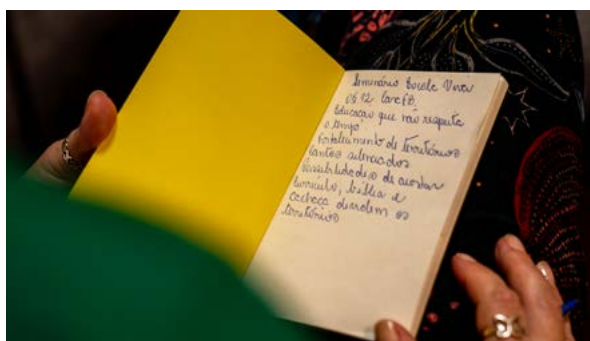 Seminário Escola Viva
06.12
Educação que não respeita
o tempo
Fortalecimento de territórios
cantos
Possibilidades de acordar
currículo, bíblia e
cachaça dissolvem os
territórios